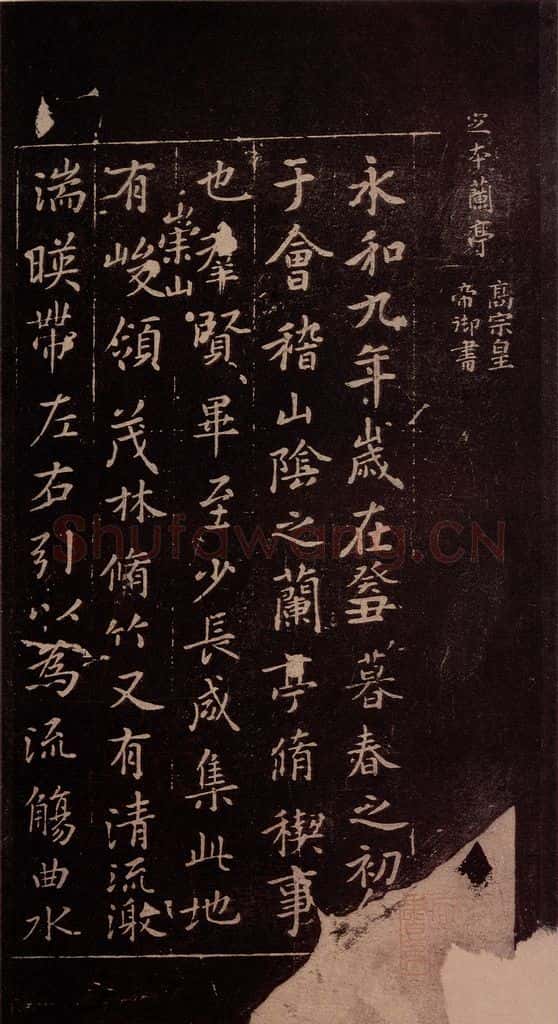 之本蘭亭
高宗皇
帝御書
永和九年歲在癸丑暮春之初
于會稽山陰之蘭亭脩稧事
也群賢畢至少長咸集此地
有崇山峻領茂林脩竹又有清流激
湍暎帶左右引以為流觴曲水
Shufawang.CN